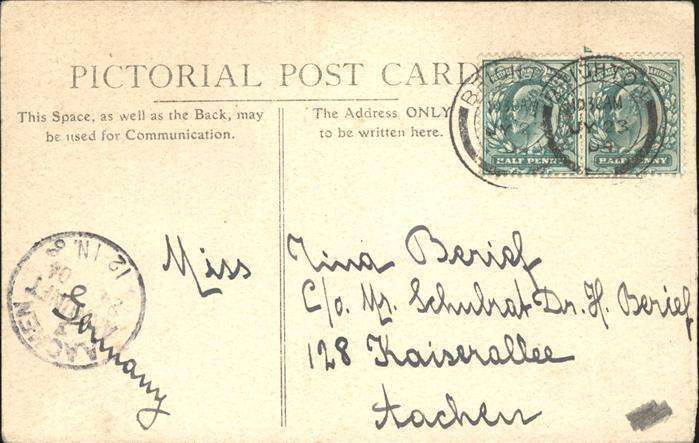 PICTORIAL POST CARD
This Space, as well as the Back, may
be used for Communication.
The Address ONLY
to be written here.
BRIGHTON
BRIGHTON
10 30 AM
HALF PENNY
HALF PENNY
Miss Tina Berief
C/o. Mr. Schulrat Dr. H. Berief
128 Kaiserallee
Aachen
Germany
AACHEN
12-1N.
04